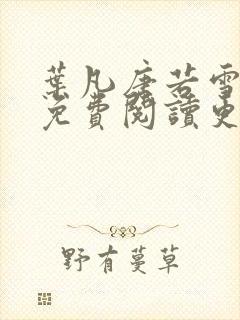 葉凡唐若雪
免費閱讀更
野有蔓草